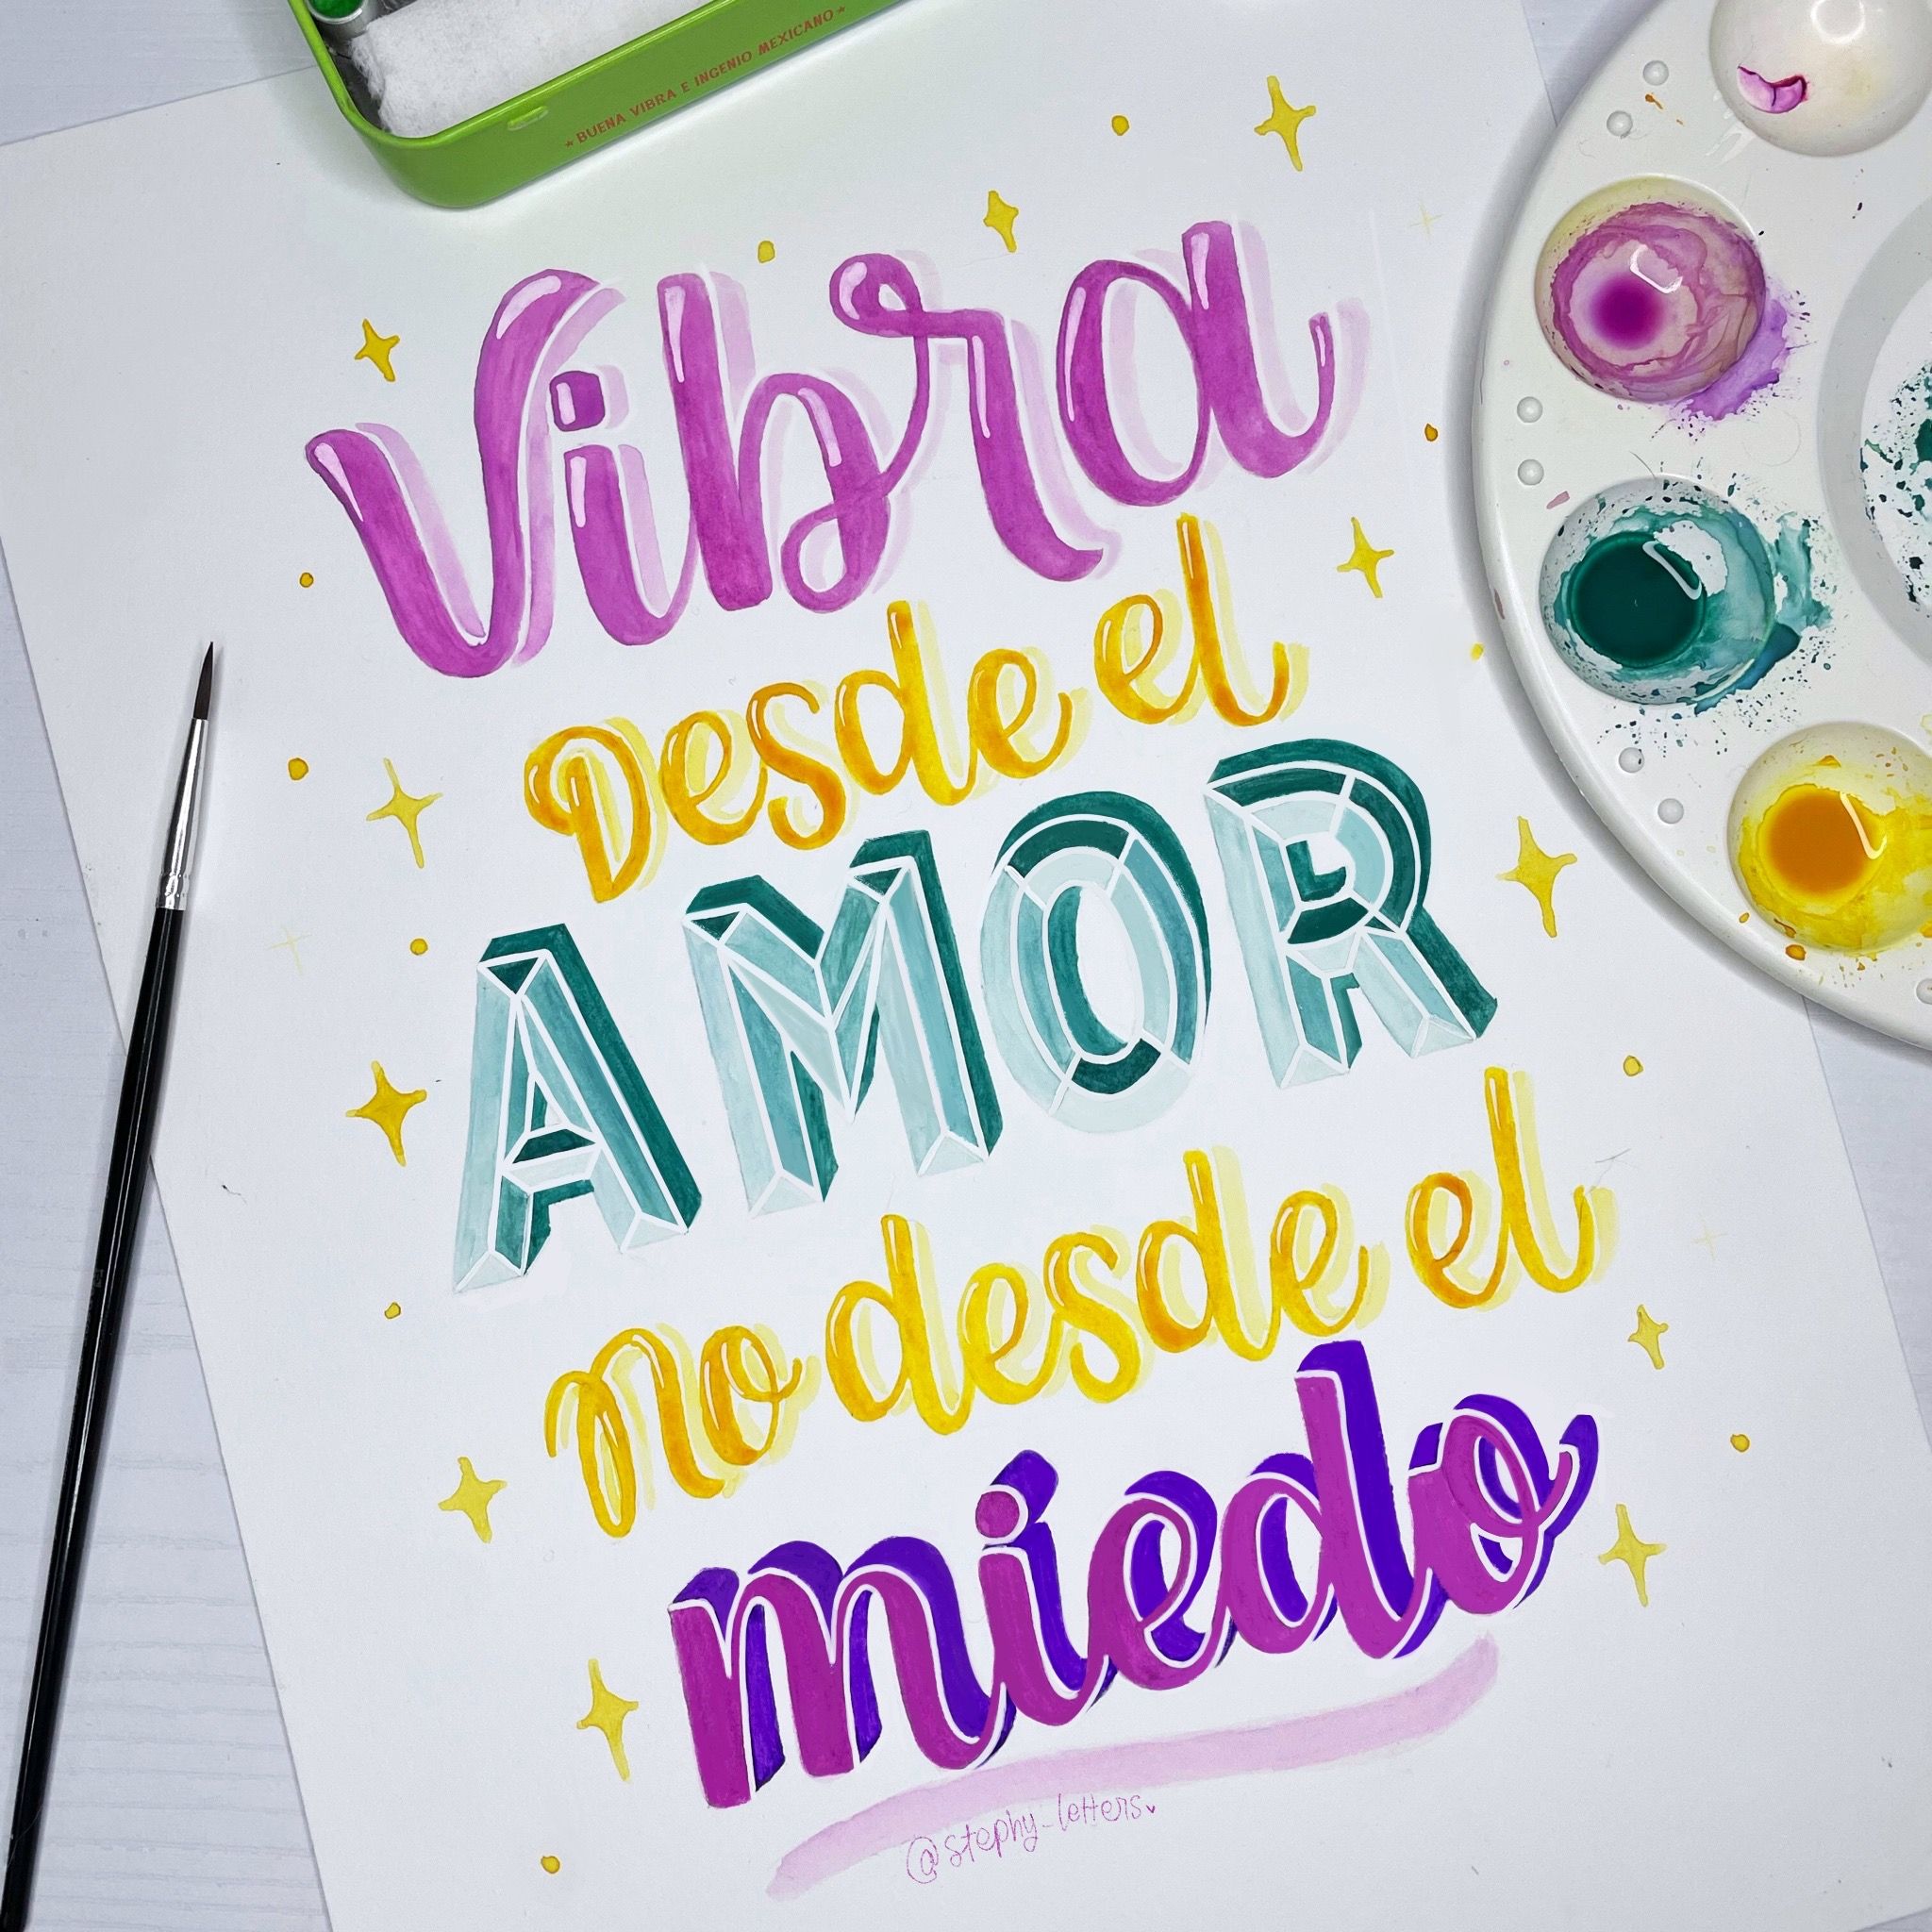 *BUENA VIBRA E INGENIO MEXICANO*
Vibra
Desde el
AMOR
No desde el
miedo
@stephy_letters